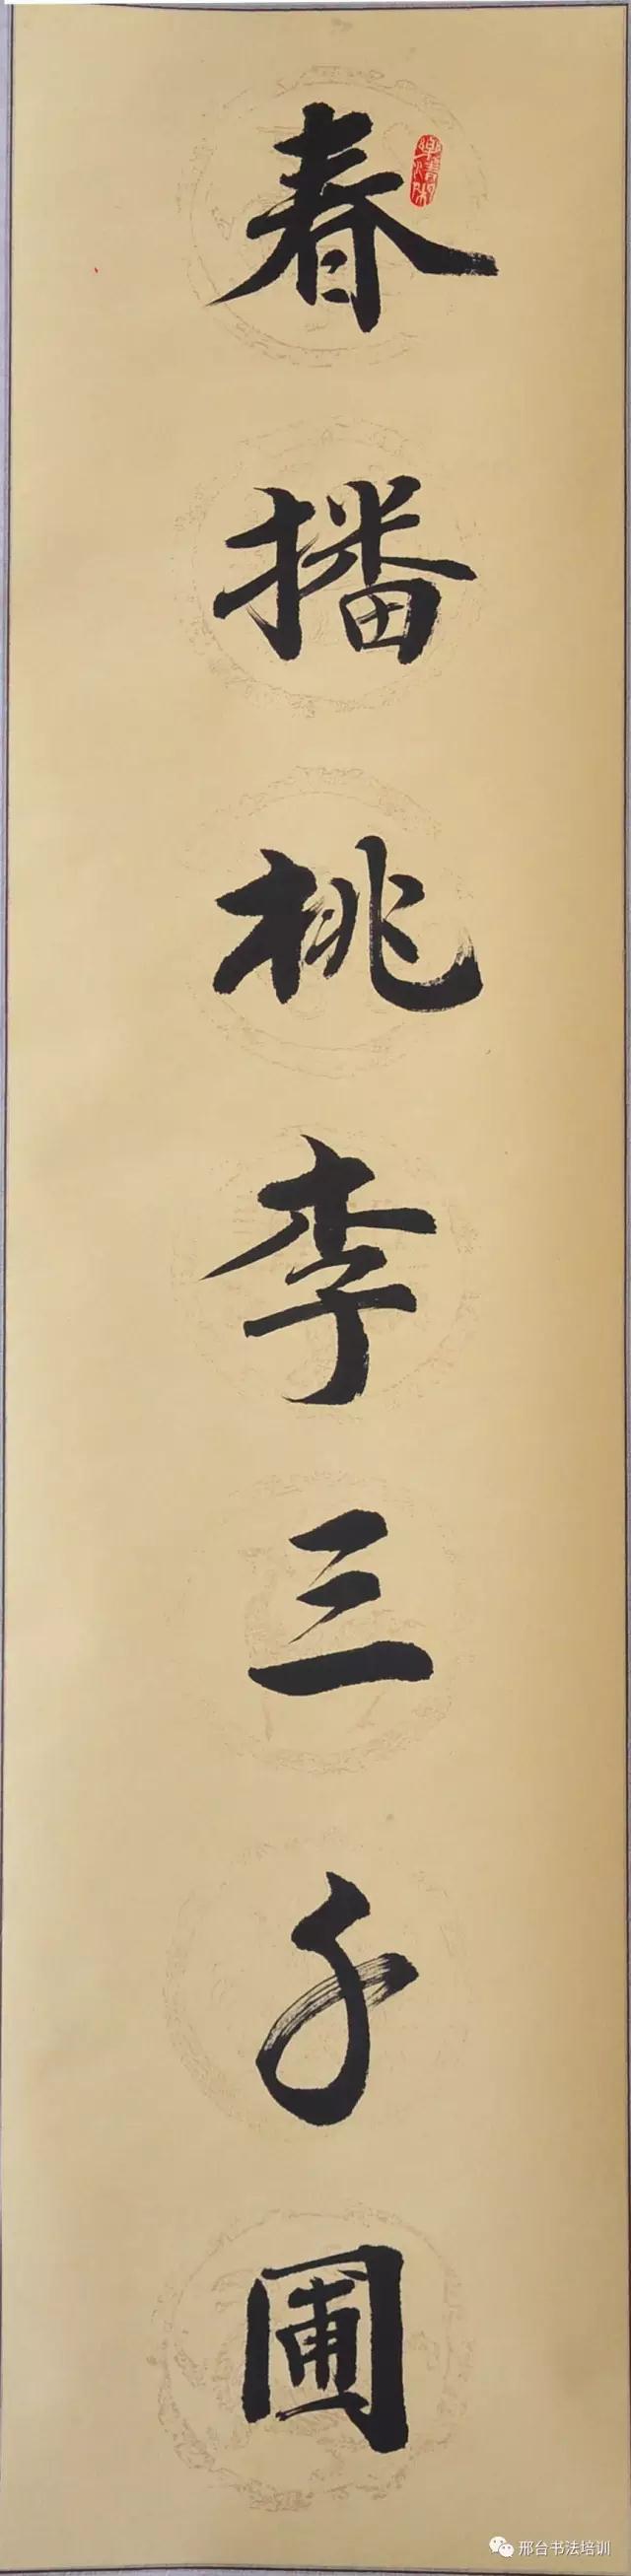 春播桃李三千圃
邢台书法培训